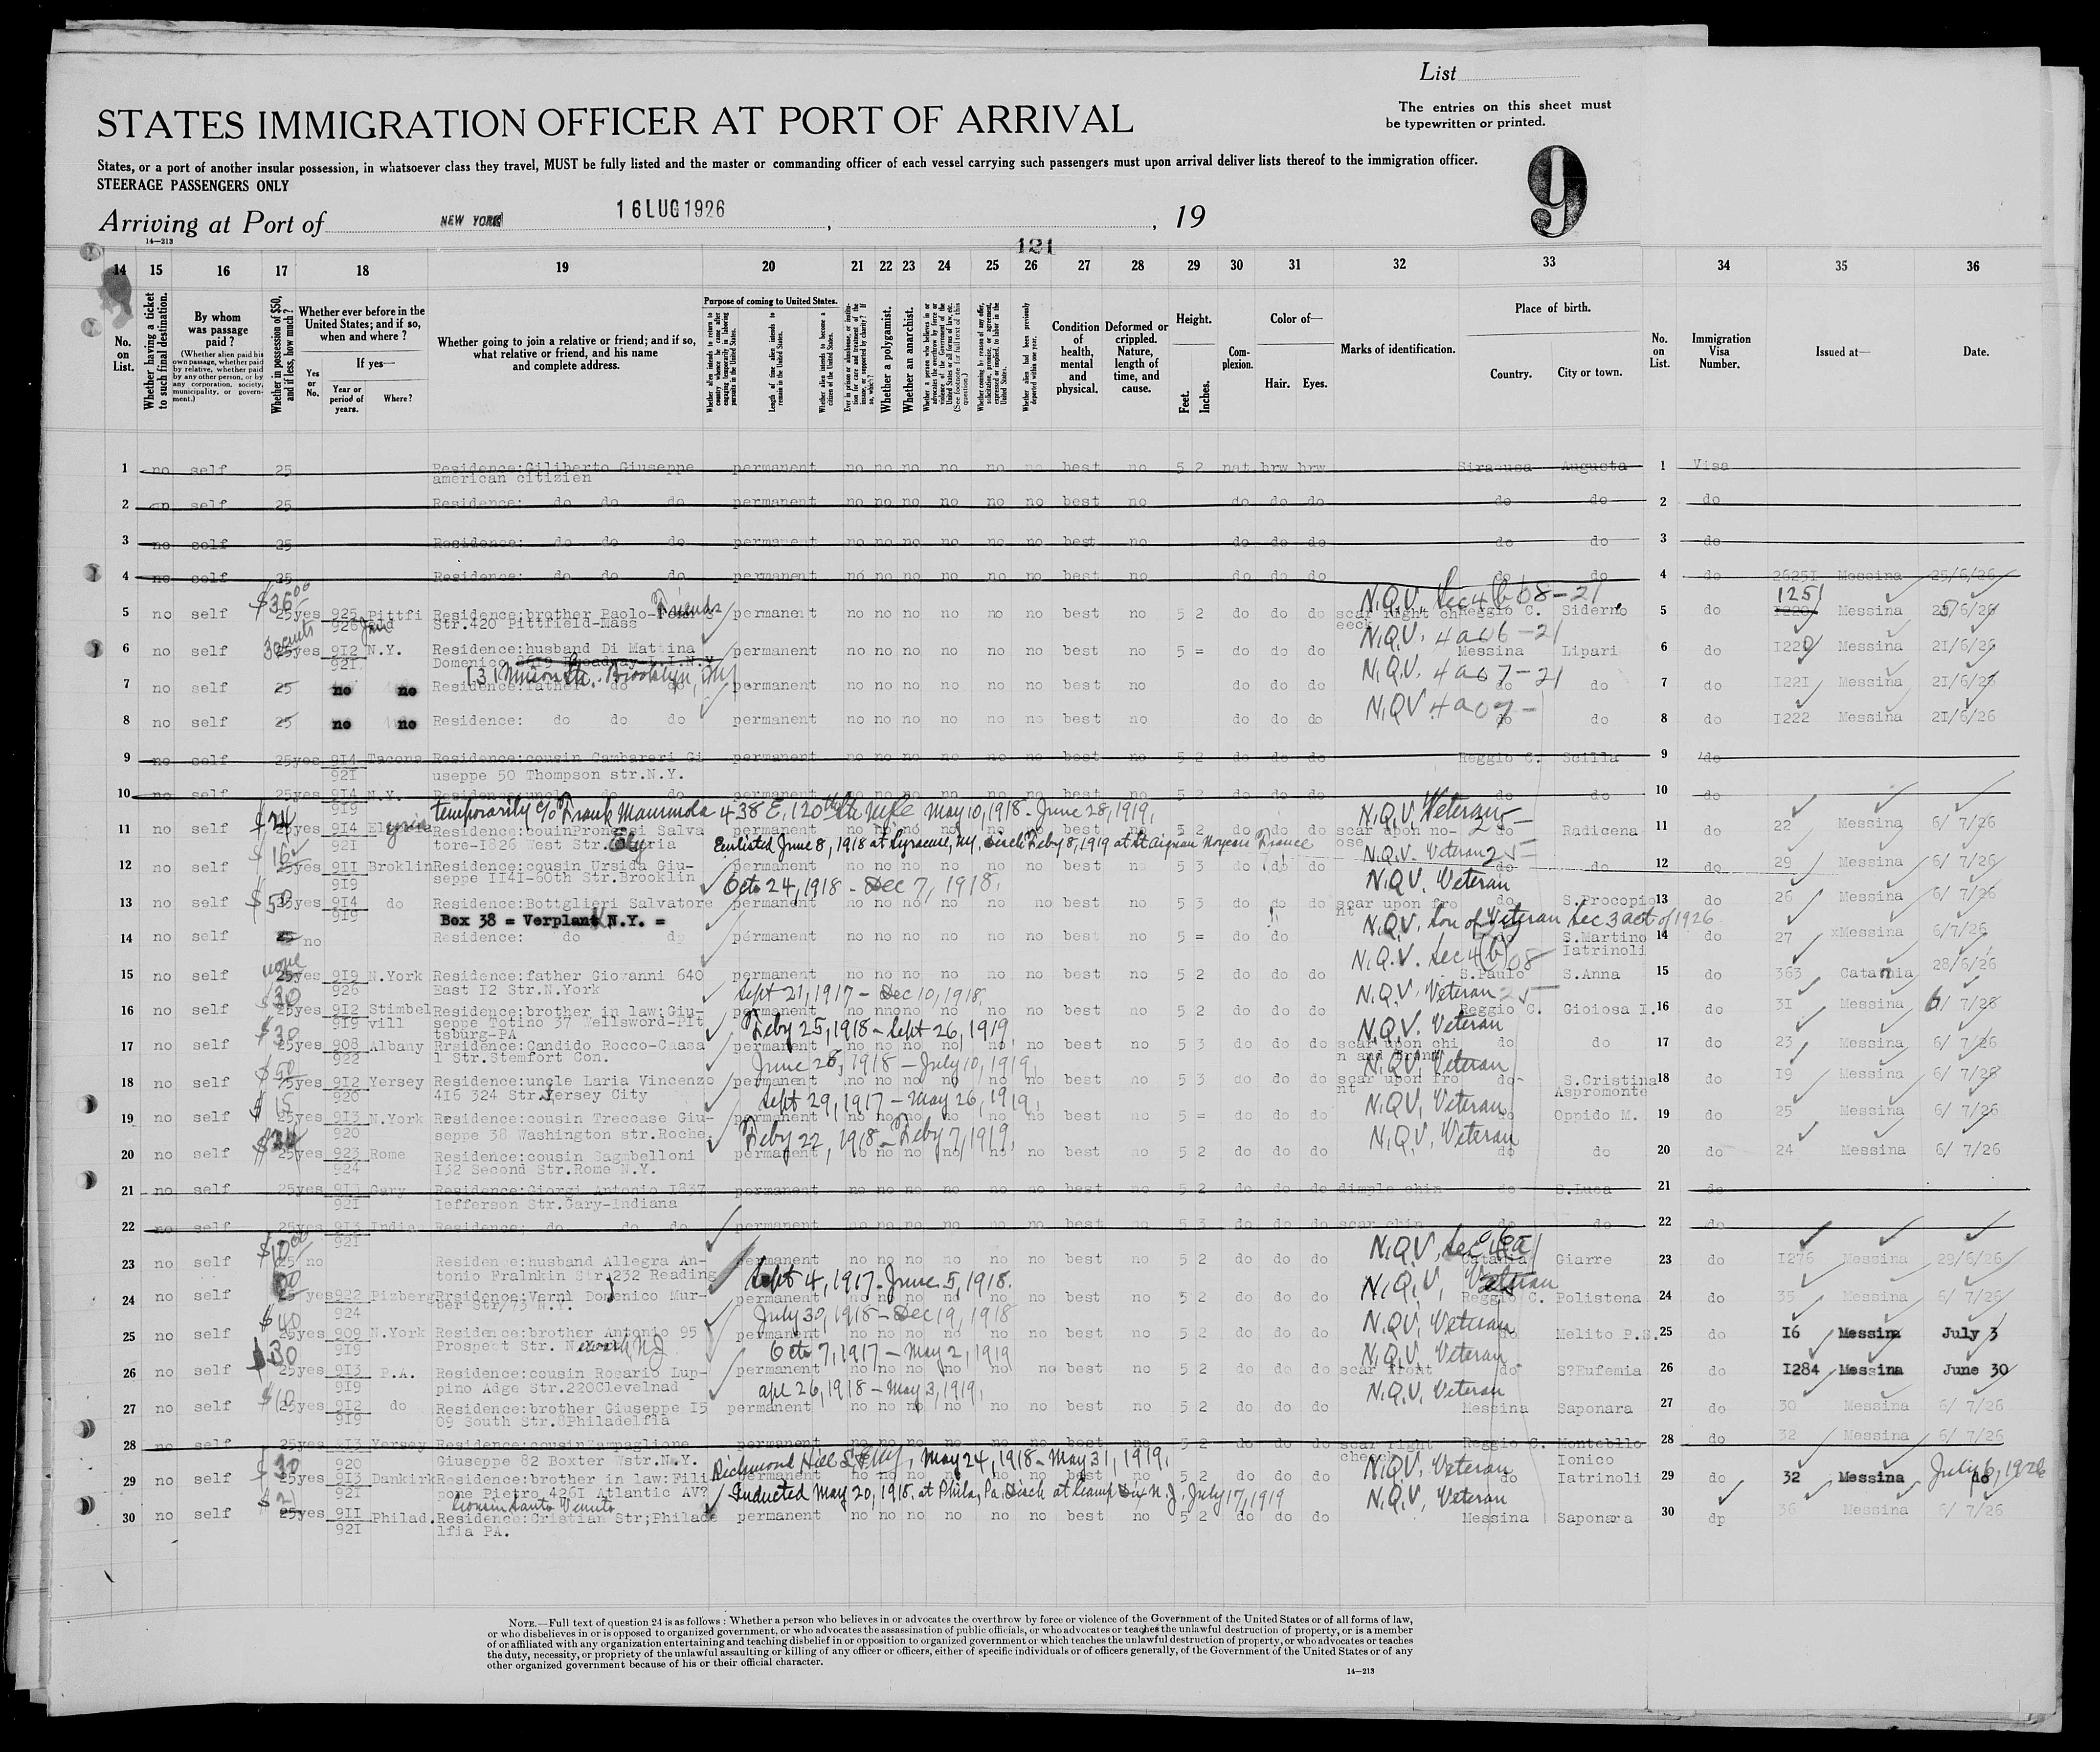 List
The entries on this sheet must
be typewritten or printed.
STATES IMMIGRATION OFFICER AT PORT OF ARRIVAL
States, or a port of another insular possession, in whatsoever class they travel, MUST be fully listed and the master or commanding officer of each vessel carrying such passengers must upon arrival deliver lists thereof to the immigration officer.
STEERAGE PASSENGERS ONLY
9
Arriving at Port of NEW YORK 16LUG1926, , 19
14—213
121
14 15 16 17 18 19 20 21 22 23 24 25 26 27 28 29 30 31 32 33 34 35 36
No. on List.
Whether having a ticket to such final destination.
By whom was passage paid?
(Whether alien paid his own passage, whether paid by relative, whether paid by any other person, or by any corporation, society, municipality, or government.)
Whether in possession of $50, and if less, how much?
Whether ever before in the United States; and if so, when and where?
If yes—
Yes or No.
Year or period of years.
Where?
Whether going to join a relative or friend; and if so, what relative or friend, and his name and complete address.
Purpose of coming to United States.
Length of time alien intends to remain in the United States.
Whether alien intends to become a citizen of the United States.
Whether a polygamist.
Whether an anarchist.
Condition of health, mental and physical.
Deformed or crippled. Nature, length of time, and cause.
Height.
Feet.
Inches.
Complexion.
Color of—
Hair.
Eyes.
Marks of identification.
Place of birth.
Country.
City or town.
No. on List.
Immigration Visa Number.
Issued at—
Date.
1 no self 25 Residence:Giliberto Giuseppe permanent no no no no no no best no 5 2 nat brw brw Siracusa Augusta 1 Visa
american citizien
2 no self 25 Residence: do do do permanent no no no no no no best no do do do do do 2 do
3 no self 25 Residence: do do do permanent no no no no no no best no do do do do do 3 do
4 no self 25 Residence: do do do permanent no no no no no no best no do do do do do 4 do 26251 Messina 25/6/26
$36 00 Friends N.Q.V. Sec 4(b) 08-21 1251
5 no self 25yes 925 Pittfi Residence:brother Paolo permanent no no no no no no best no 5 2 do do do scar right ch Reggio C. Siderno 5 do Messina 25/6/26
926 Str.420 Pittfield-Mass eeck
30 cents N.Q.V. 4a06-21
6 no self 25yes 912 N.Y. Residence:husband Di Mattina permanent no no no no no no best no 5 = do do do Messina Lipari 6 do 1220 Messina 21/6/26
921 Domenico 8619 Broadway-L.I.N.Y.
131 Union Str. Brooklyn, NY N.Q.V. 4a07-21
7 no self 25 no no Residence:father do do permanent no no no no no no best no do do do do do 7 do 1221 Messina 21/6/26
N.Q.V 4a07-
8 no self 25 no no Residence: do do do permanent no no no no no no best no do do do do do 8 do 1222 Messina 21/6/26
9 no self 25yes 914 Tacona Residence:cousin Cambareri Gi permanent no no no no no no best no 5 2 do do do Reggio C. Scilla 9 do
921 useppe 50 Thompson str.N.Y.
10 no self 25yes 914 N.Y. Residence:uncle do do permanent no no no no no no best no 5 2 do do do do do 10 do
919 temporarily c/o Frank Mammola 438 E, 120th Str May 10, 1918 - June 28, 1919, N.Q.V. Veteran
11 no self 25yes 914 Elyria Residence:couinPronesi Salva permanent no no no no no no best no 5 2 do do do scar upon no- do Radicena 11 do 22 Messina 6/ 7/26
921 tore-1826 West Str. Elyria Enlisted June 8, 1918 at Syracuse, NY. Disch Feby 8, 1919 at St Aignan Noyers France ose N.Q.V. Veteran 25
$16
12 no self 25yes 911 Broklin Residence:cousin Ursida Giu- permanent no no no no no no best no 5 3 do do do do do 12 do 29 Messina 6/ 7/26
919 seppe 1141-60th Str.Brooklin Octo 24, 1918 - Dec 7, 1918. N.Q.V. Veteran
$50
13 no self 25yes 914 do Residence:Bottglieri Salvatore permanent no no no no no no best no 5 3 do do do scar upon fro do S.Procopio 13 do 26 Messina 6/ 7/26
919 Box 38 = Verplank N.Y. = nt N.Q.V. Son of Veteran Sec 3 act of 1926
14 no self 25 no Residence: do do permanent no no no no no no best no 5 = do do do S.Martino 14 do 27 xMessina 6/7/26
Iatrinoli
none N.Q.V. Sec 4(b) 08
15 no self 25yes 919 N.York Residence:father Giovanni 640 permanent no no no no no no best no 5 2 do do do S.Paulo S.Anna 15 do 363 Catania 28/6/26
926 East 12 Str.N.York Sept 21, 1917 - Dec 10, 1918. N.Q.V. Veteran 25
$30
16 no self 25yes 912 Stimbel Residence:brother in law:Giu- permanent no no no no no no best no 5 2 do do do Reggio C. Gioiosa I. 16 do 31 Messina 6/ 7/26
919 vill seppe Totino 37 Wellsword-Pit Feby 25, 1918 - Sept 26, 1919, N.Q.V. Veteran
tsburg-PA
$30
17 no self 25yes 908 Albany Rrsidence:Candido Rocco-Caasa permanent no no no no no no best no 5 3 do do do scar upon chi do do 17 do 23 Messina 6/ 7/26
922 l Str.Stemfort Con. June 28, 1918 - July 10, 1919, n and front N.Q.V. Veteran
$50
18 no self 25yes 912 Yersey Residence:uncle Laria Vincenzo permanent no no no no no no best no 5 3 do do do scar upon fro do S.Cristina 18 do 19 Messina 6/ 7/26
920 416 324 Str.Jersey City Sept 29, 1917 - May 26, 1919, nt N.Q.V. Veteran Aspromonte
$15
19 no self 25yes 913 N.York Residence:cousin Treccase Giu- permanent no no no no no no best no 5 = do do do do Oppido M. 19 do 25 Messina 6/ 7/26
920 seppe 38 Washington str.Roche Feby 22, 1918 - Feby 7, 1919, N.Q.V. Veteran
20 no self 25yes 923 Rome Residence:cousin Sagmbelloni permanent no no no no no no best no 5 2 do do do do do 20 do 24 Messina 6/ 7/26
924 132 Second Str.Rome N.Y.
21 no self 25yes 913 Gary Residence:Giorgi Antonio 1837 permanent no no no no no no best no 5 2 do do do dimple chin do S.Luca 21 do
921 Iefferson Str.Gary-Indiana
22 no self 25yes 913 India Residence; do do do permanent no no no no no no best no 5 3 do do do scar chin do do 22 do
921
$10 00 N.Q.V. Sec 4(a)
23 no self 25 no Residence:husband Allegra An- permanent no no no no no no best no 5 2 do do do Catania Giarre 23 do 1276 Messina 29/6/26
tonio Fralnkin Str.232 Reading Sept 4, 1917 - June 5, 1918. N.Q.V. Veteran
24 no self 25 yes 922 Pizberg Rrsidence:Verni Domenico Mur- permanent no no no no no no best no 5 2 do do do Reggio C. Polistena 24 do 35 Messina 6/ 7/26
924 ber Str/73 N.Y. July 30, 1918 - Dec 19, 1918 N.Q.V. Veteran
$40
25 no self 25yes 909 N.York Residence:brother Antonio 95 permanent no no no no no no best no 5 2 do do do do Melito P.S. 25 do 16 Messina July 3
919 Prospect Str. Newark NJ Octo 7, 1917 - May 2, 1919 N.Q.V. Veteran
$30
26 no self 25yes 913 P.A. Residence:cousin Rosario Lup- permanent no no no no no no best no 5 2 do do do scar front do S?Eufemia 26 do 1284 Messina June 30
919 pino Adge Str.220Clevelnad apl 26, 1918 - May 3, 1919, N.Q.V. Veteran
27 no self 25yes 912 do Residence:brother Giuseppe 15 permanent no no no no no no best no 5 2 do do do Messina Saponara 27 do 30 Messina 6/ 7/26
919 09 South Str.8Philadelfia
28 no self 25yes 913 Yersey Residence:cousin permanent no no no no no no best no 5 2 do do do scar right Reggio C. Montebllo 28 do 32 Messina 6/ 7/26
920 Giuseppe 82 Boxter Wstr.N.Y. Richmond Hill May 24, 1918 - May 31, 1919. cheeck N.Q.V. Veteran Ionico
$30
29 no self 25yes 913 Dankirk Residence:brother in law:Fili permanent no no no no no no best no 5 2 do do do do Iatrinoli 29 do 32 Messina July 6, 1926
921 pone Pietro 4261 Atlantic AV? Inducted May 20, 1918. at Phila, Pa. Disch at Camp Dix N.J. July 17, 1919 N.Q.V. Veteran
Cousin Santo Venuto
30 no self 25yes 911 Philad. Residence:Cristian Str;Philade permanent no no no no no no best no 5 2 do do do Messina Saponara 30 dp 36 Messina 6/ 7/26
921 lfia PA.
NOTE.—Full text of question 24 is as follows: Whether a person who believes in or advocates the overthrow by force or violence of the Government of the United States or of all forms of law,
or who disbelieves in or is opposed to organized government, or who advocates the assassination of public officials, or who advocates or teaches the unlawful destruction of property, or is a member
of or affiliated with any organization entertaining and teaching disbelief in or opposition to organized government or which teaches the unlawful destruction of property, or who advocates or teaches
the duty, necessity, or propriety of the unlawful assaulting or killing of any officer or officers, either of specific individuals or of officers generally, of the Government of the United States or of any
other organized government because of his or their official character.
14—213